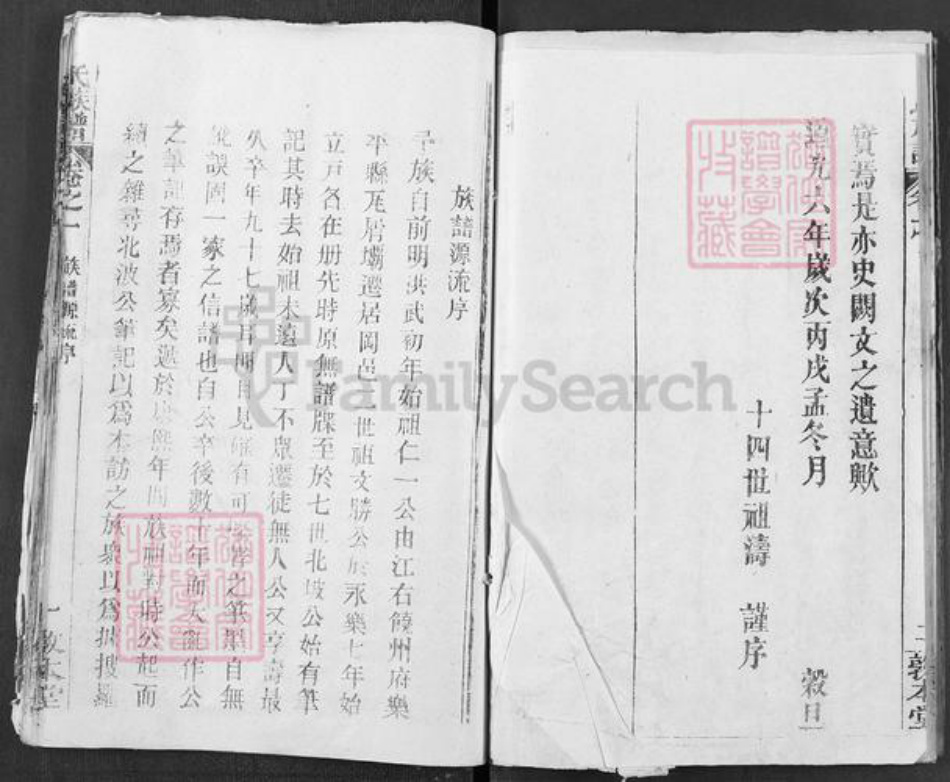 實焉是亦史闕文之遺意歟
道光六年歲次丙戌孟冬月 穀旦
十四世祖濤 謹序
二 敦本堂
族譜源流序
予族自前明洪武初年始祖仁一公由江右饒州府樂
平縣瓦屑壩遷居岡邑二世祖文勝公於永樂七年始
立戶名在册先時原無譜牒至於七世北坡公始有筆
記其時去始祖未遠人丁不眾遷徙無人公又享壽最
久卒年九十七歲耳聞目見確有可 之筆墨自無
訛誤固一家之信譜也自公卒後數十年而 亂作公
之筆記存焉者寡矣 於康熙年間族祖對時公起而
續之雜尋北波公筆記以為本訪之族衆以為 搜羅
氏族譜 卷之一 族譜源流序 一 敦本堂
家譜學會 收藏
FamilySearch